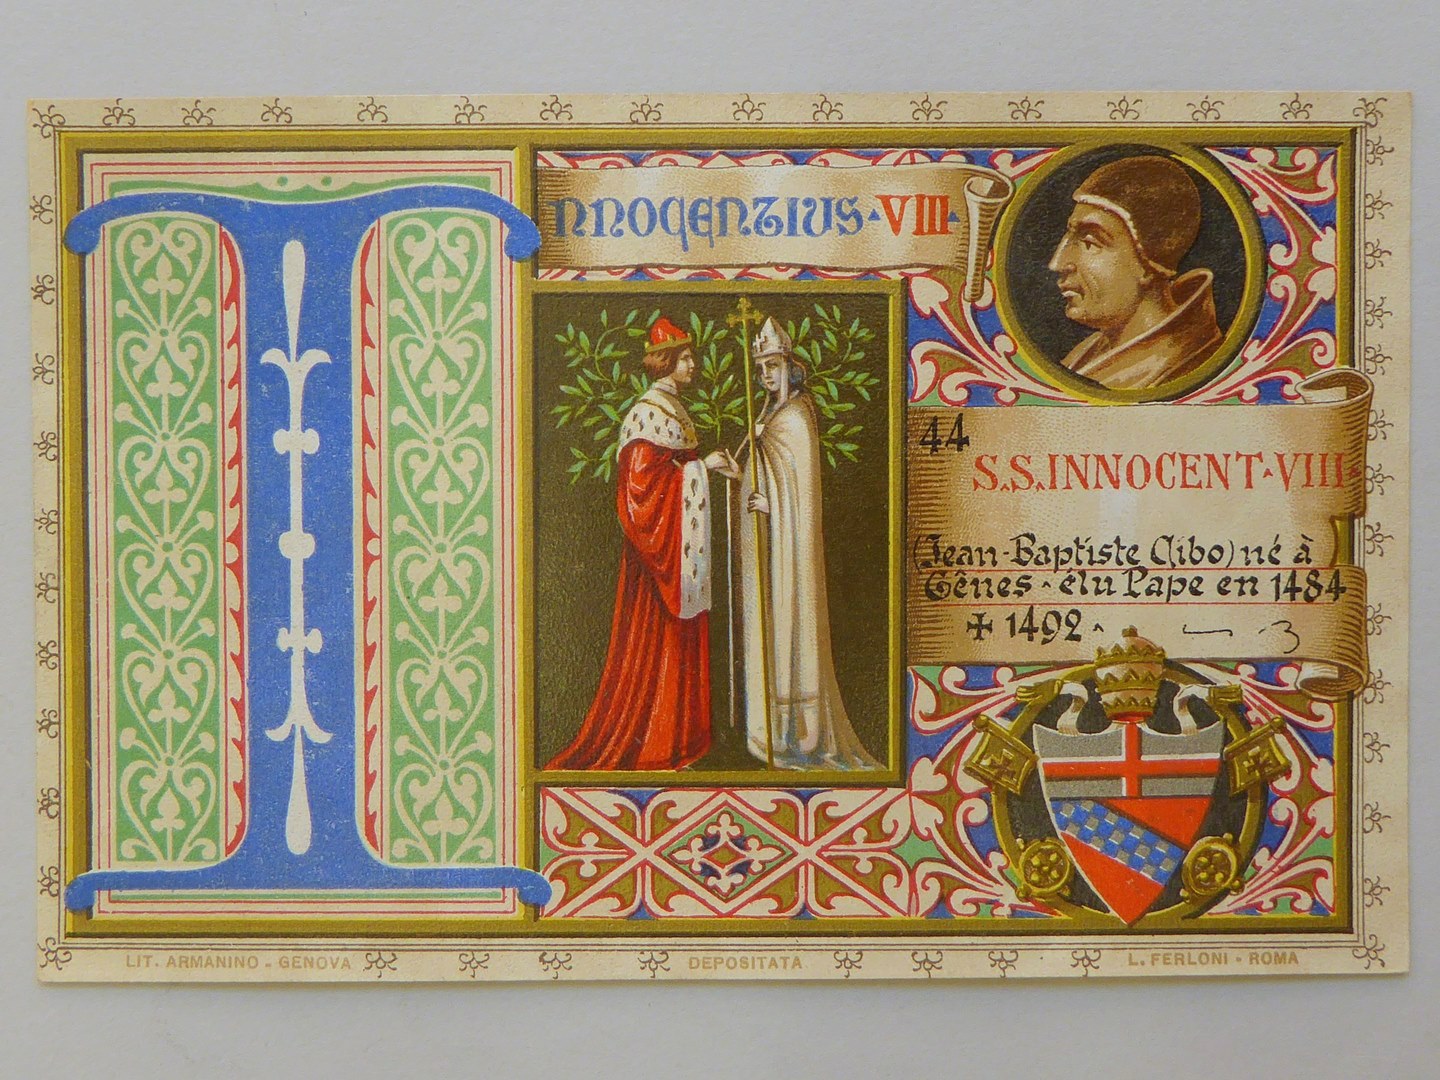 INNOCENTIUS · VIII ·
44
S.S. INNOCENT · VIII ·
(Jean-Baptiste Cibo) né à
Gênes - élu Pape en 1484
✠ 1492.
LIT. ARMANINO - GENOVA
DEPOSITATA
L. FERLONI - ROMA